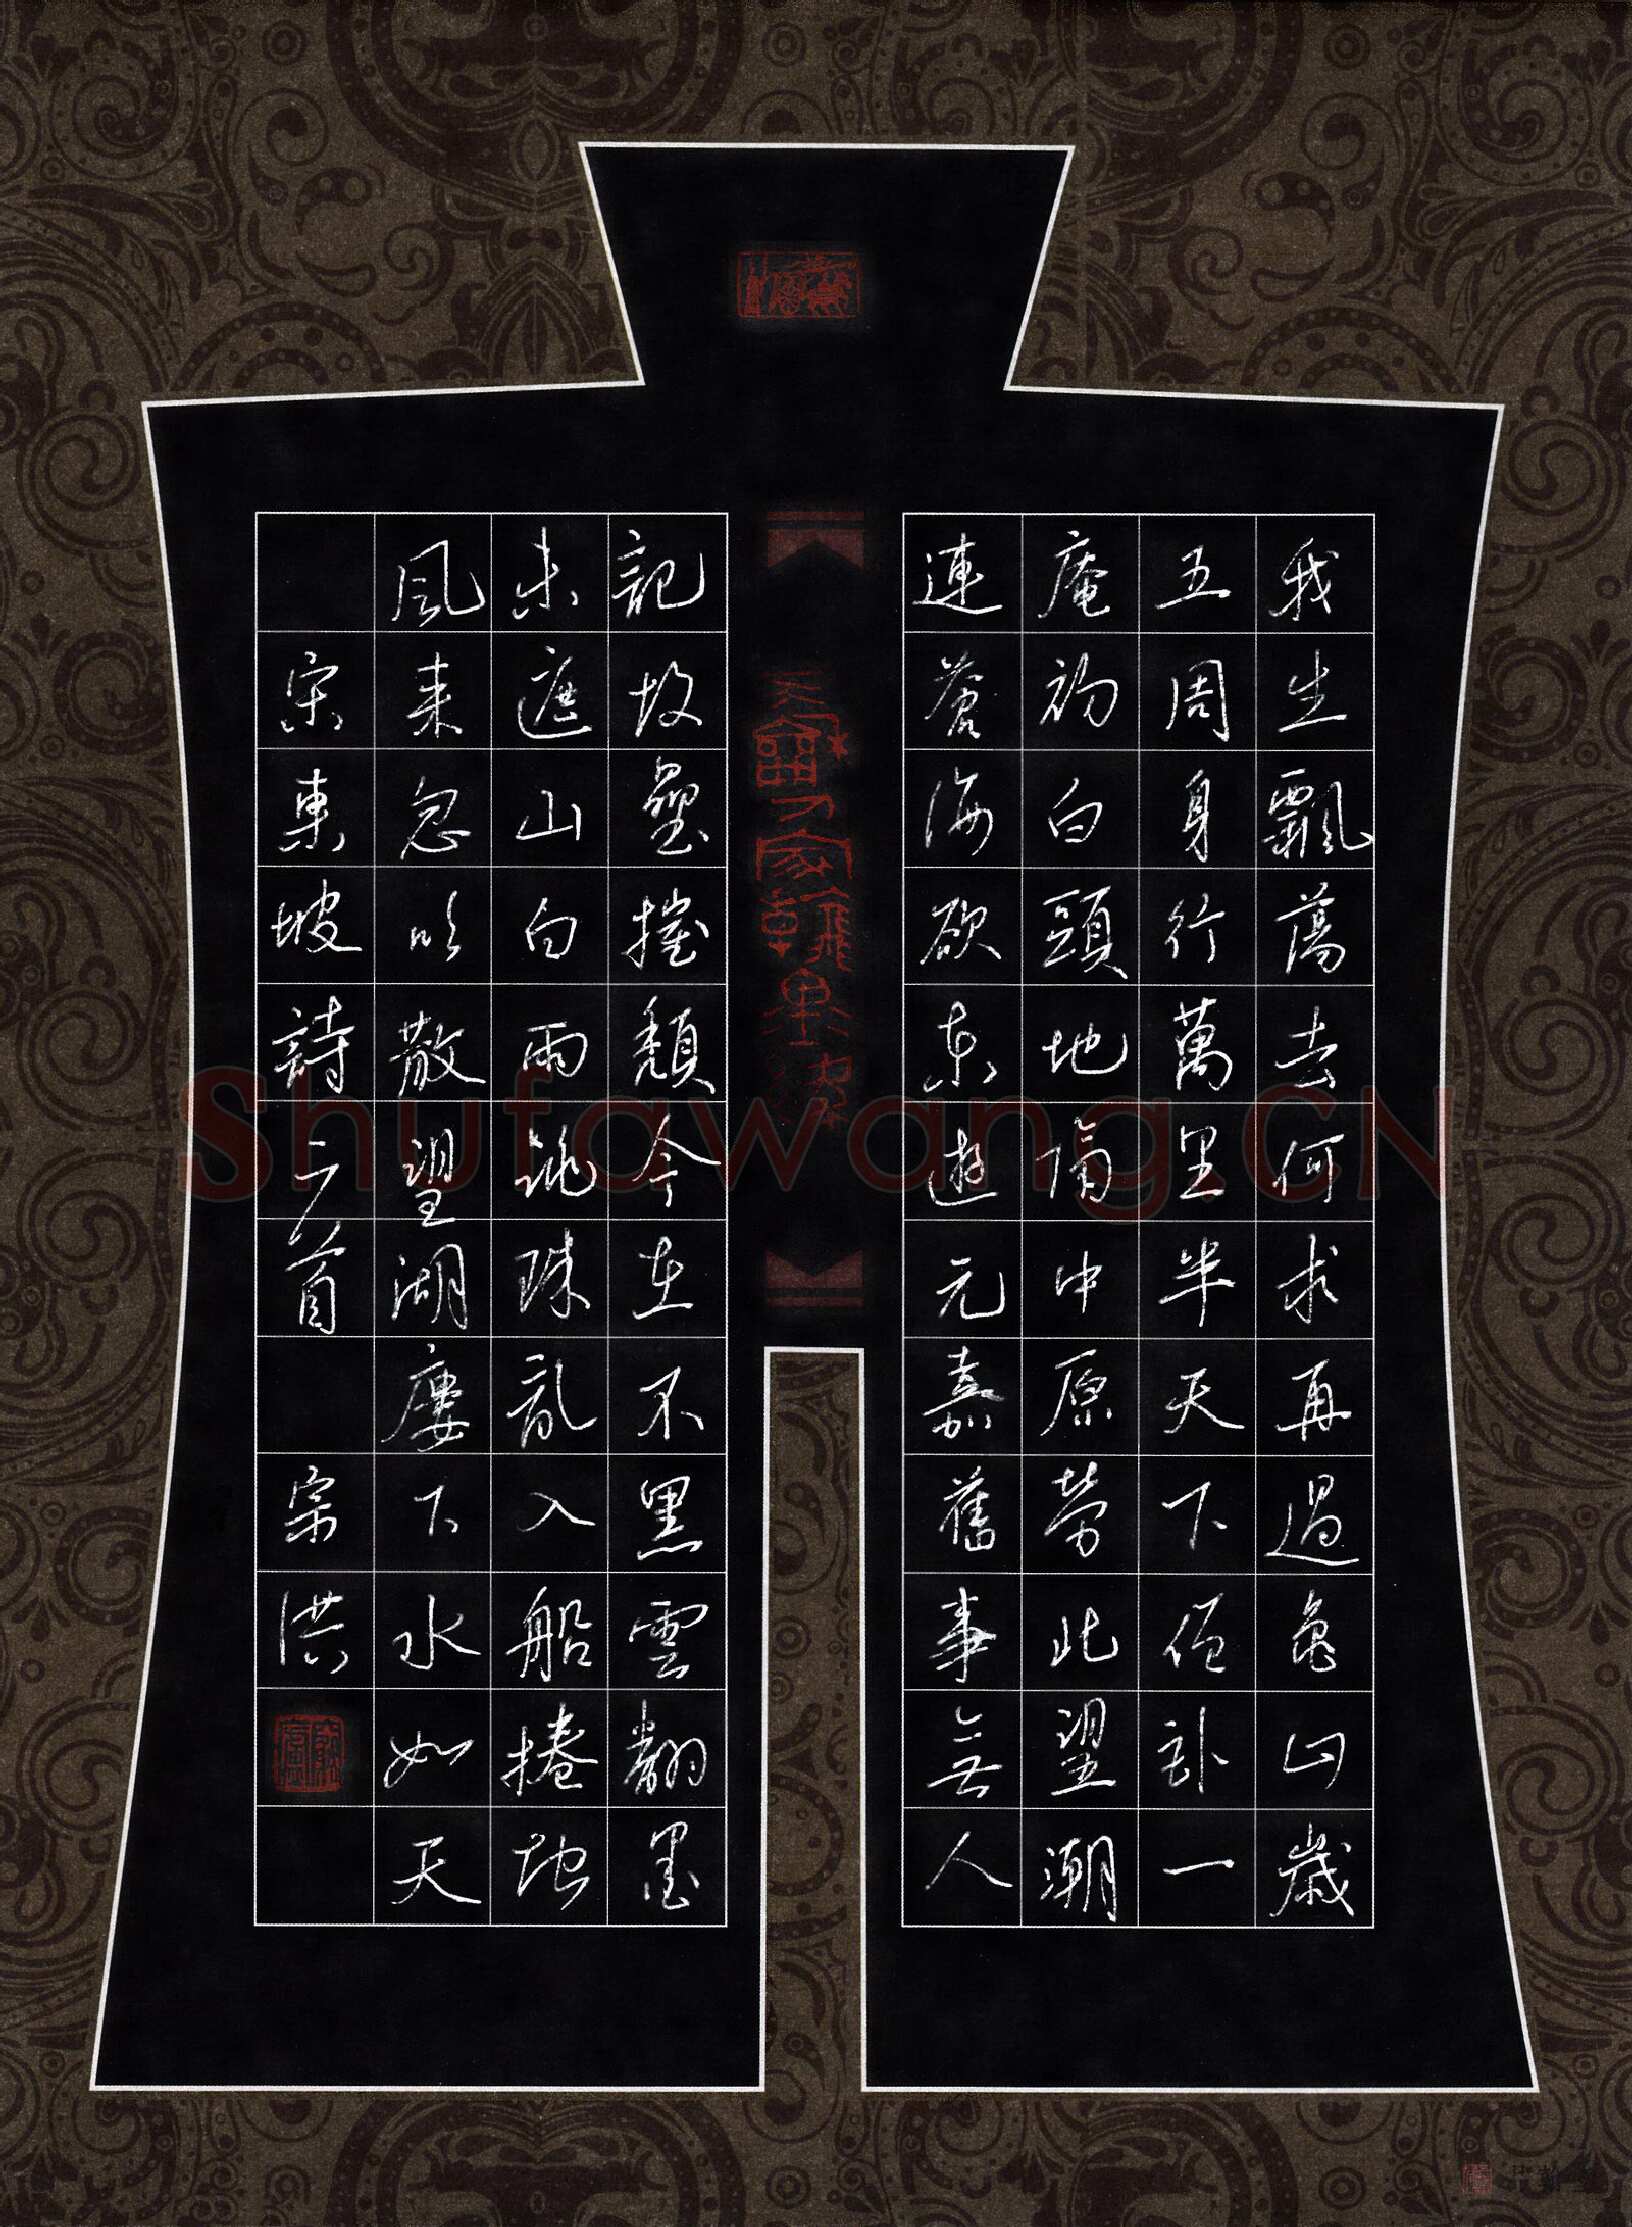 我生飄蕩去何求再過龜山歲
五周身行萬里半天下僧卧一
庵初白頭地隔中原勞北望潮
連蒼海欲東遊元嘉舊事無人
記故壘摧頹今在不黑雲翻墨
未遮山白雨跳珠亂入船捲地
風來忽吹散望湖樓下水如天
宋東坡詩二首 宗洪
Shufawang.CN